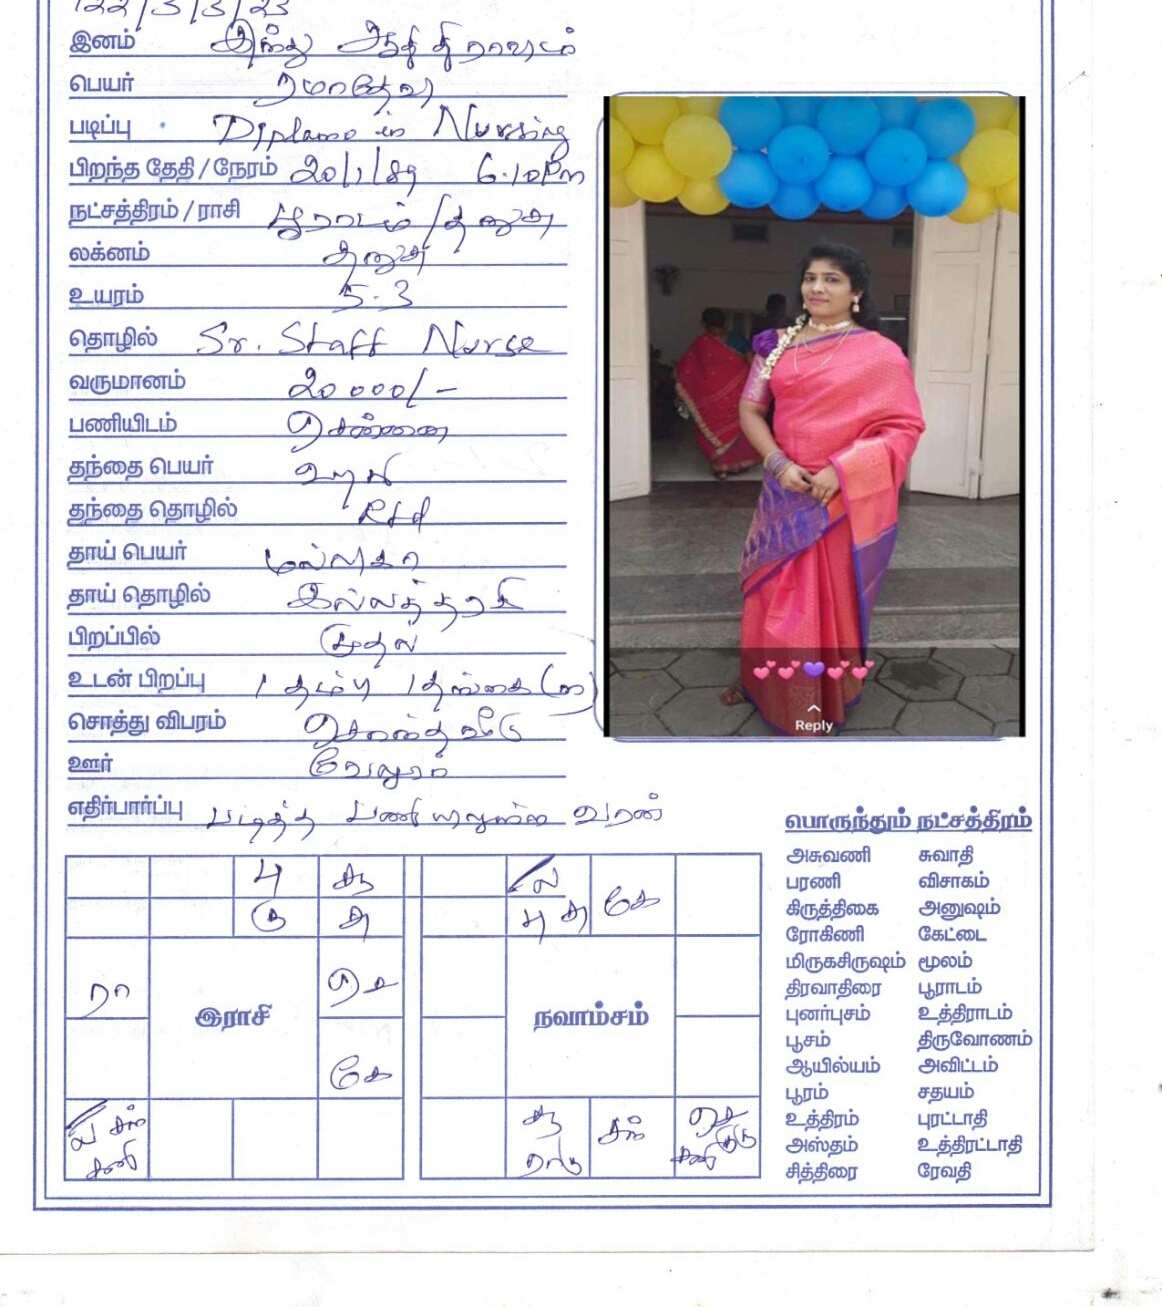 122/3/3/23
இனம் இந்து ஆதிதிராவிடம்
பெயர் ரமாதேவி
படிப்பு Diploma in Nursing
பிறந்த தேதி / நேரம் 20/1/89 6.10Pm
நட்சத்திரம் / ராசி பூராடம் / தனுசு
லக்னம் தனுசு
உயரம் 5.3
தொழில் Sr. Staff Nurse
வருமானம் 20000/-
பணியிடம் சென்னை
தந்தை பெயர்
தந்தை தொழில் Rtd
தாய் பெயர் மல்லிகா
தாய் தொழில் இல்லத்தரசி
பிறப்பில் முதல்
உடன் பிறப்பு 1 தம்பி 1 தங்கை (ம)
சொத்து விபரம் சொந்த வீடு
ஊர் வேலூர்
எதிர்பார்ப்பு படித்த பணியிலுள்ள வரன்
Reply
பொருந்தும் நட்சத்திரம்
அசுவணி சுவாதி
பரணி விசாகம்
கிருத்திகை அனுஷம்
ரோகிணி கேட்டை
மிருகசிருஷம் மூலம்
திரவாதிரை பூராடம்
புனர்பூசம் உத்திராடம்
பூசம் திருவோணம்
ஆயில்யம் அவிட்டம்
பூரம் சதயம்
உத்திரம் புரட்டாதி
அஸ்தம் உத்திரட்டாதி
சித்திரை ரேவதி
பு
கு
ரா
இராசி
செ
கே
ல சந்
சனி
ல
கே
நவாம்சம்
ராகு
சந்
செ
குரு
சனி